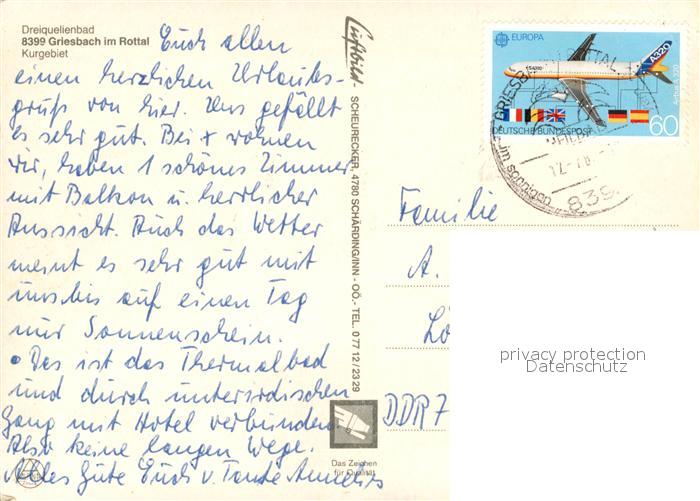 Dreiquellenbad
8399 Griesbach im Rottal
Kurgebiet
Euch allen
einen herzlichen Urlaubs-
gruß von hier. Uns gefällt
es sehr gut. Bei + wohnen
wir, haben 1 schönes Zimmer
mit Balkon u. herrlicher
Aussicht. Auch das Wetter
meint es sehr gut mit
uns, bis auf einen Tag
nur Sonnenschein.
• Das ist das Thermalbad
und durch unterirdischen
Gang mit Hotel verbunden.
Also keine langen Wege.
Alles Gute Euch v. Tante Annelies
Luftbild - SCHEURECKER, 4780 SCHÄRDING/INN - OÖ.- TEL. 0 77 12 / 23 29
Das Zeichen
für Qualität
EUROPA
A320
Airbus A 320
60
DEUTSCHE BUNDESPOST
GRIESBACH ROTTAL
im sonnigen
839
Familie
A.
Lö
DDR 7
privacy protection
Datenschutz